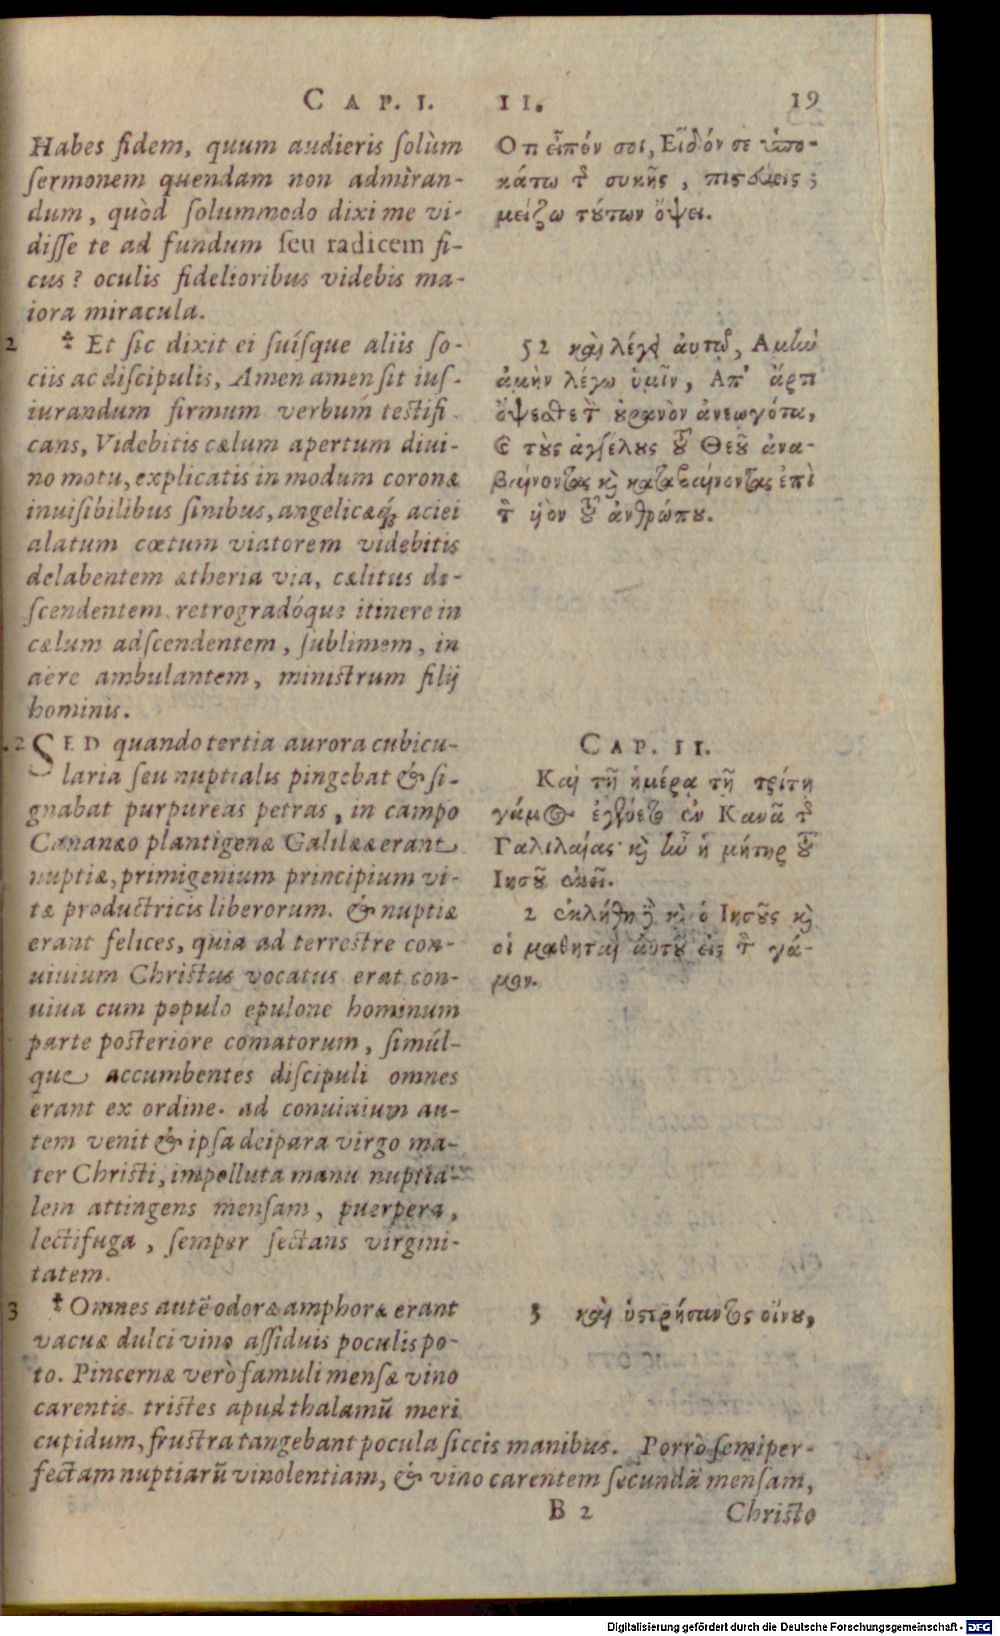 CAP. I. II. 19
Habes fidem, quum audieris ſolùm
ſermonem quendam non admìran-
dum, quòd ſolummodo dixi me vi-
diſſe te ad fundum ſeu radicem fi-
cus? oculis fidelioribus videbis ma-
iora miracula.
2 ‡ Et ſic dixit ei ſuíſque aliis ſo-
ciis ac diſcipulis, Amen amen ſit iuſ-
iurandum firmum verbum teſtifi-
cans, Videbitis cælum apertum diui-
no motu, explicatis in modum coronæ
inuiſibilibus ſinibus, angelicæq́; aciei
alatum cœtum viatorem videbitis
delabentem ætheria via, cælitus de-
ſcendentem, retrogradóque itinere in
cælum adſcendentem, ſublimem, in
aëre ambulantem, miniſtrum filij
hominis.
.2 SED quando tertia aurora cubicu-
laria ſeu nuptialis pingebat & ſi-
gnabat purpureas petras, in campo
Cananæo plantigenæ Galilææ erant
nuptiæ, primigenium principium vi-
tæ productricis liberorum. & nuptiæ
erant felices, quia ad terreſtre con-
uiuium Chriſtus vocatus erat con-
uiua cum populo epulone hominum
parte poſteriore comatorum, ſimúl-
que accumbentes diſcipuli omnes
erant ex ordine. ad conuiuium au-
tem venit & ipſa deipara virgo ma-
ter Chriſti, impolluta manu nuptia-
lem attingens menſam, puerpera,
lectifuga, ſemper ſectans virgini-
tatem.
3 ‡ Omnes autē odoræ amphoræ erant
vacuæ dulci vino aſſiduis poculis po-
to. Pincernæ verò famuli menſæ vino
carentis triſtes apud thalamū meri
cupidum, fruſtra tangebant pocula ſiccis manibus. Porrò ſemiper-
fectam nuptiarū vinolentiam, & vino carentem ſecundā menſam,
B 2 Chriſto
Ὅτι εἶπόν σοι, Εἶδόν σε ὑπο-
κάτω τῆς συκῆς, πιστεύεις;
μείζω τούτων ὄψει.
52 καὶ λέγει αὐτῷ, Αμὴν
ἀμὴν λέγω ὑμῖν, Απ' ἄρτι
ὄψεσθε τὸν οὐρανὸν ἀνεωγότα,
καὶ τοὺς ἀγγέλους τοῦ Θεοῦ ἀνα-
βαίνοντας καὶ καταβαίνοντας ἐπὶ
τὸν υἱὸν τοῦ ἀνθρώπου.
CAP. II.
Καὶ τῇ ἡμέρᾳ τῇ τρίτῃ
γάμος ἐγένετο ἐν Κανᾶ τῆς
Γαλιλαίας· καὶ ἦν ἡ μήτηρ τοῦ
Ιησοῦ ἐκεῖ.
2 ἐκλήθη δὲ καὶ ὁ Ιησοῦς καὶ
οἱ μαθηταὶ αὐτοῦ εἰς τὸν γά-
μον.
3 καὶ ὑστερήσαντος οἴνου,
Digitalisierung gefördert durch die Deutsche Forschungsgemeinschaft - DFG